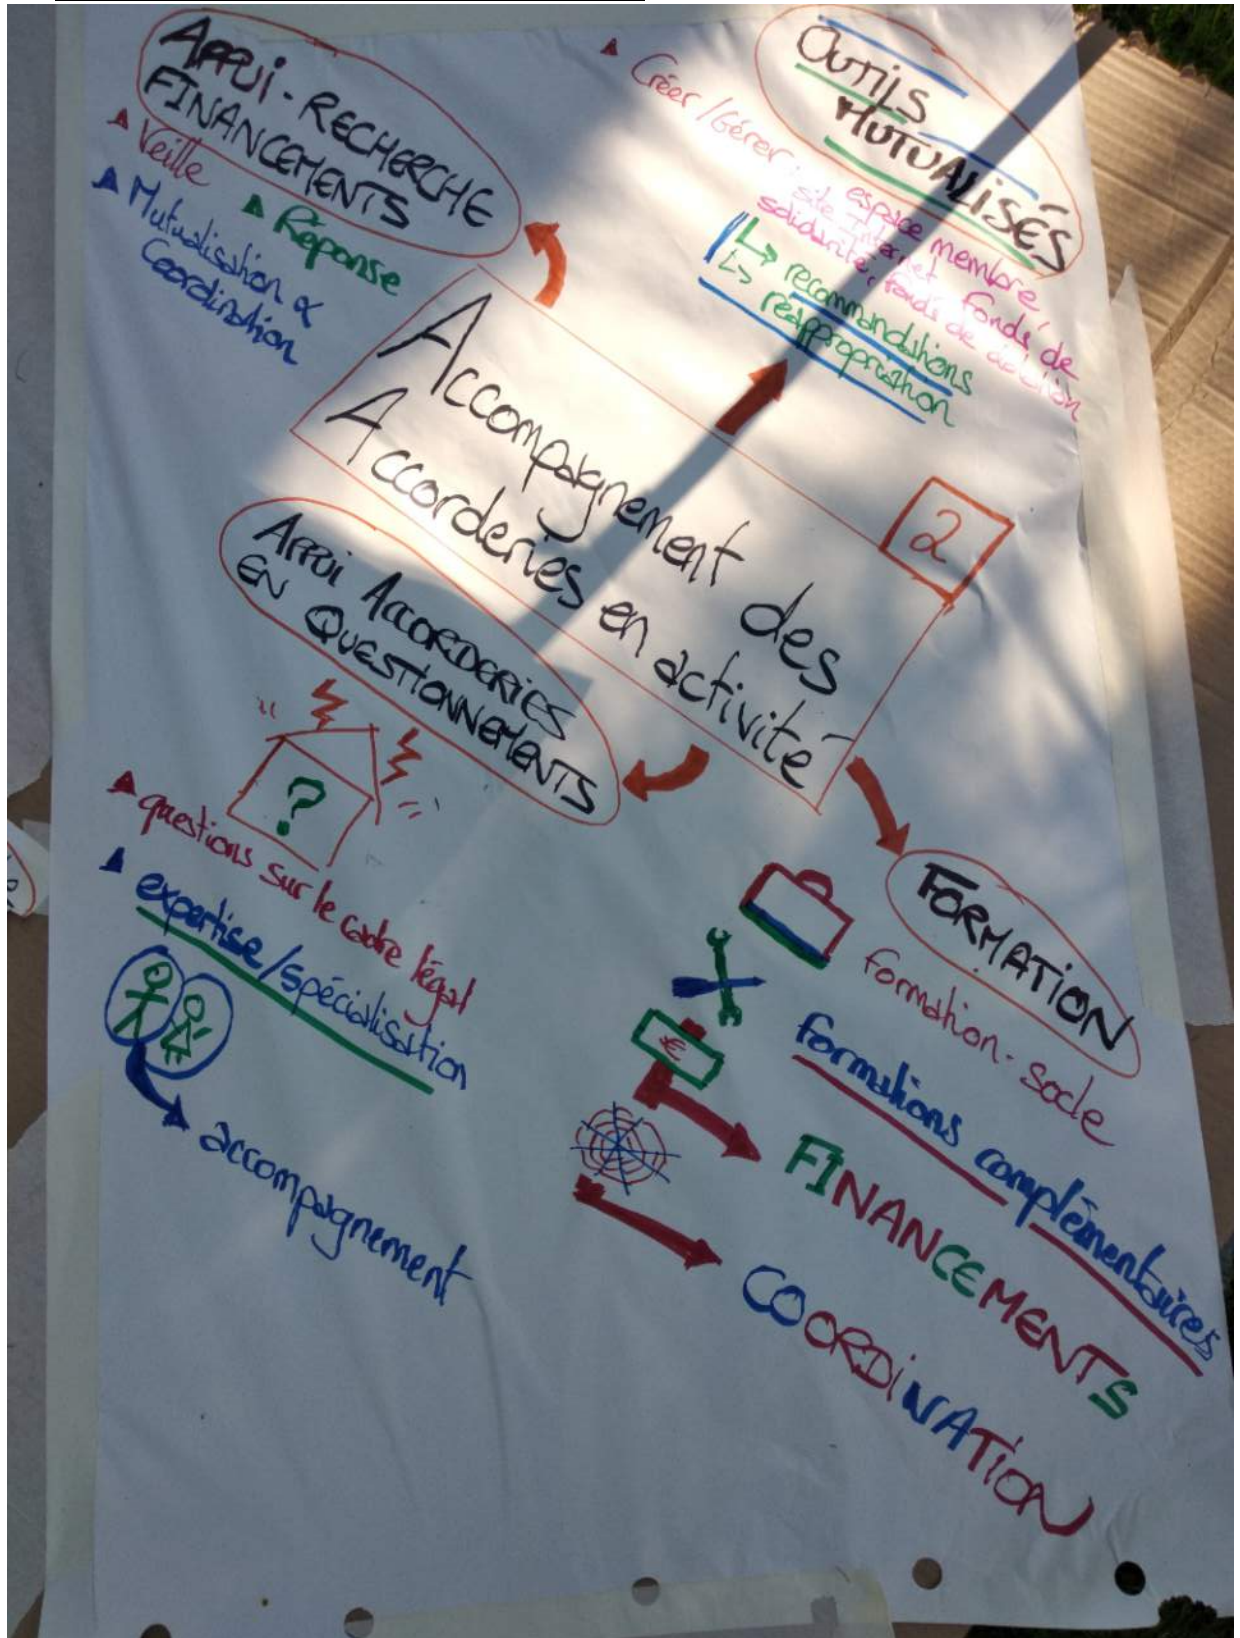 APPUI - RECHERCHE
FINANCEMENTS
Veille
Réponse
Mutualisation &
Coordination
OUTILS
MUTUALISÉS
Créer / Gérer : espace membre,
site Internet, Fonds de
solidarité, fonds de dotation
recommandations
réappropriation
Accompagnement des
Accorderies en activité
2
APPUI ACCORDERIES
EN QUESTIONNEMENTS
?
questions sur le cadre légal
expertise/spécialisation
accompagnement
FORMATION
formation-socle
formations complémentaires
€
FINANCEMENTS
COORDINATION